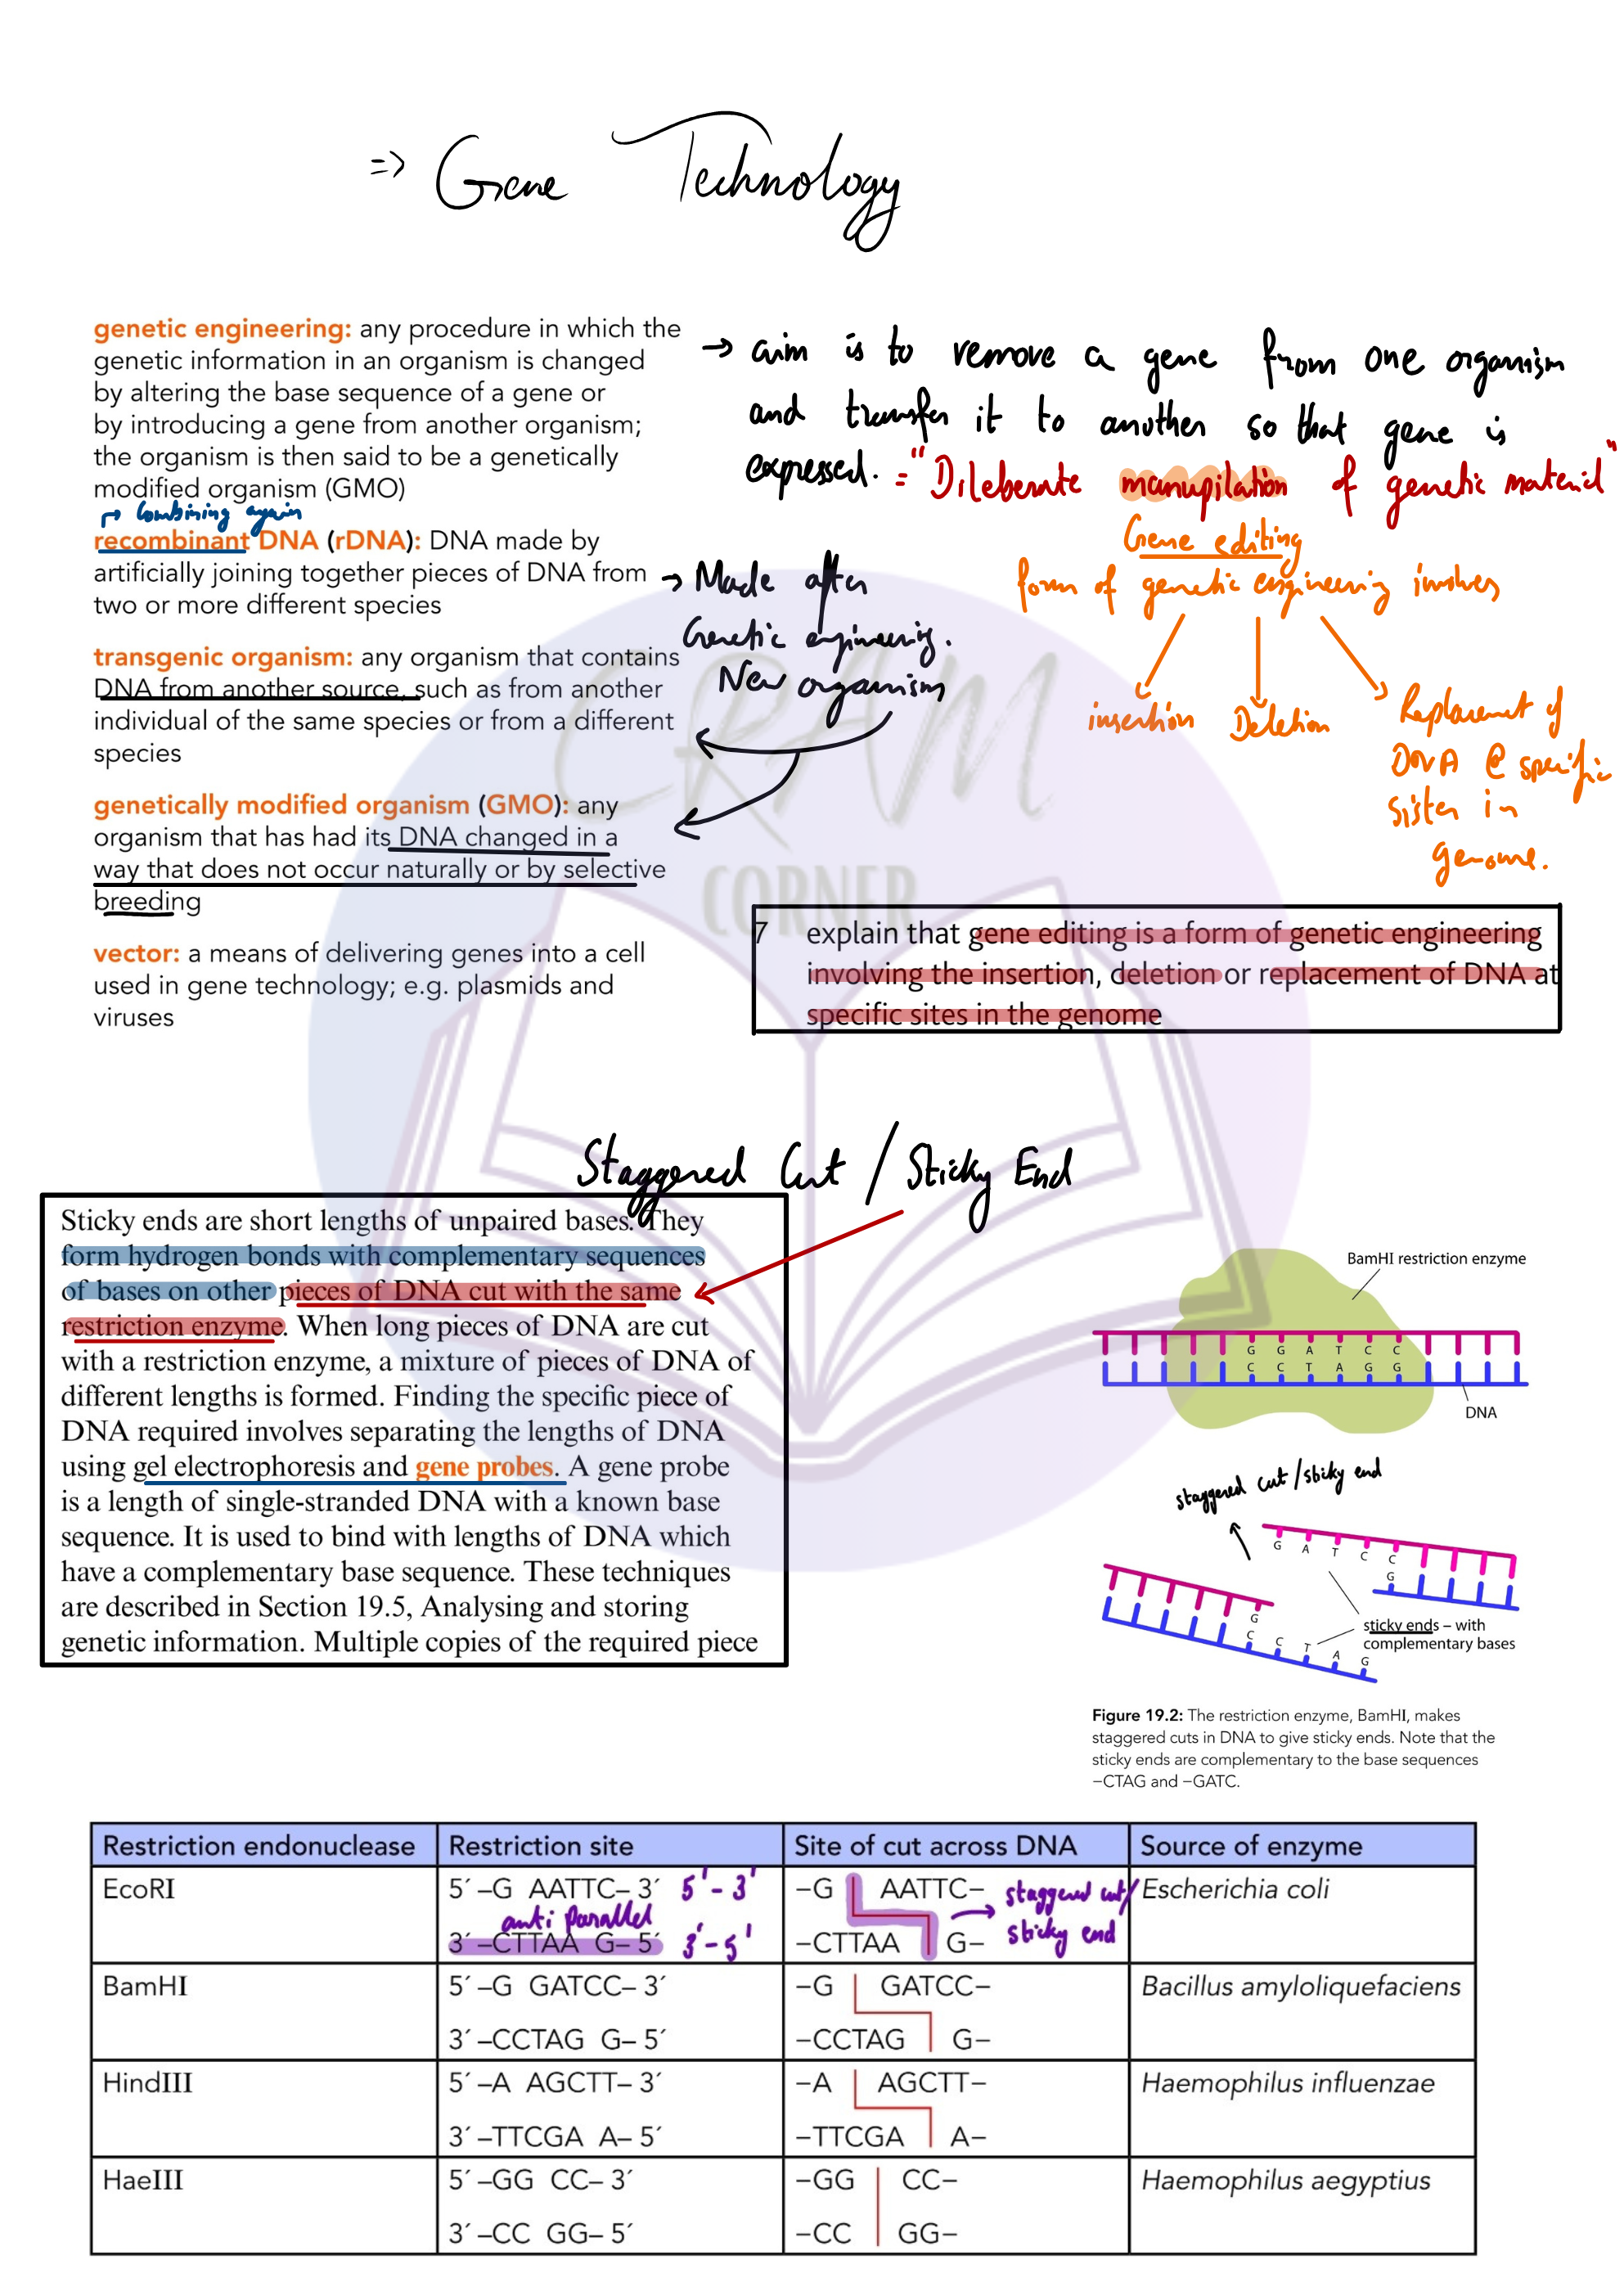 => Gene Technology
genetic engineering: any procedure in which the
genetic information in an organism is changed
by altering the base sequence of a gene or
by introducing a gene from another organism;
the organism is then said to be a genetically
modified organism (GMO)
→ aim is to remove a gene from one organism
and transfer it to another so that gene is
expressed. = "Dileberate manupilation of genetic material"
Gene editing
form of genetic engineering involves
insertion
Deletion
Replacement of
DNA @ specific
sister in
genome.
→ Combining again
recombinant DNA (rDNA): DNA made by
artificially joining together pieces of DNA from
two or more different species
→ Made after
Genetic engineering.
New organism
transgenic organism: any organism that contains
DNA from another source, such as from another
individual of the same species or from a different
species
genetically modified organism (GMO): any
organism that has had its DNA changed in a
way that does not occur naturally or by selective
breeding
vector: a means of delivering genes into a cell
used in gene technology; e.g. plasmids and
viruses
CRAM
CORNER
7 explain that gene editing is a form of genetic engineering
involving the insertion, deletion or replacement of DNA at
specific sites in the genome
Staggered Cut / Sticky End
Sticky ends are short lengths of unpaired bases. They
form hydrogen bonds with complementary sequences
of bases on other pieces of DNA cut with the same
restriction enzyme. When long pieces of DNA are cut
with a restriction enzyme, a mixture of pieces of DNA of
different lengths is formed. Finding the specific piece of
DNA required involves separating the lengths of DNA
using gel electrophoresis and gene probes. A gene probe
is a length of single-stranded DNA with a known base
sequence. It is used to bind with lengths of DNA which
have a complementary base sequence. These techniques
are described in Section 19.5, Analysing and storing
genetic information. Multiple copies of the required piece
BamHI restriction enzyme
G G A T C C
C C T A G G
DNA
staggered cut/sticky end
G A T C C
G
G
C C T A G
sticky ends – with
complementary bases
Figure 19.2: The restriction enzyme, BamHI, makes
staggered cuts in DNA to give sticky ends. Note that the
sticky ends are complementary to the base sequences
–CTAG and –GATC.
Restriction endonuclease Restriction site Site of cut across DNA Source of enzyme
EcoRI 5´ –G AATTC– 3´ 5'-3' –G AATTC– → staggered cut/ Escherichia coli
anti parallel
3´ –CTTAA G– 5´ 3'-5' –CTTAA G– sticky end
BamHI 5´ –G GATCC– 3´ –G GATCC– Bacillus amyloliquefaciens
3´ –CCTAG G– 5´ –CCTAG G–
HindIII 5´ –A AGCTT– 3´ –A AGCTT– Haemophilus influenzae
3´ –TTCGA A– 5´ –TTCGA A–
HaeIII 5´ –GG CC– 3´ –GG CC– Haemophilus aegyptius
3´ –CC GG– 5´ –CC GG–